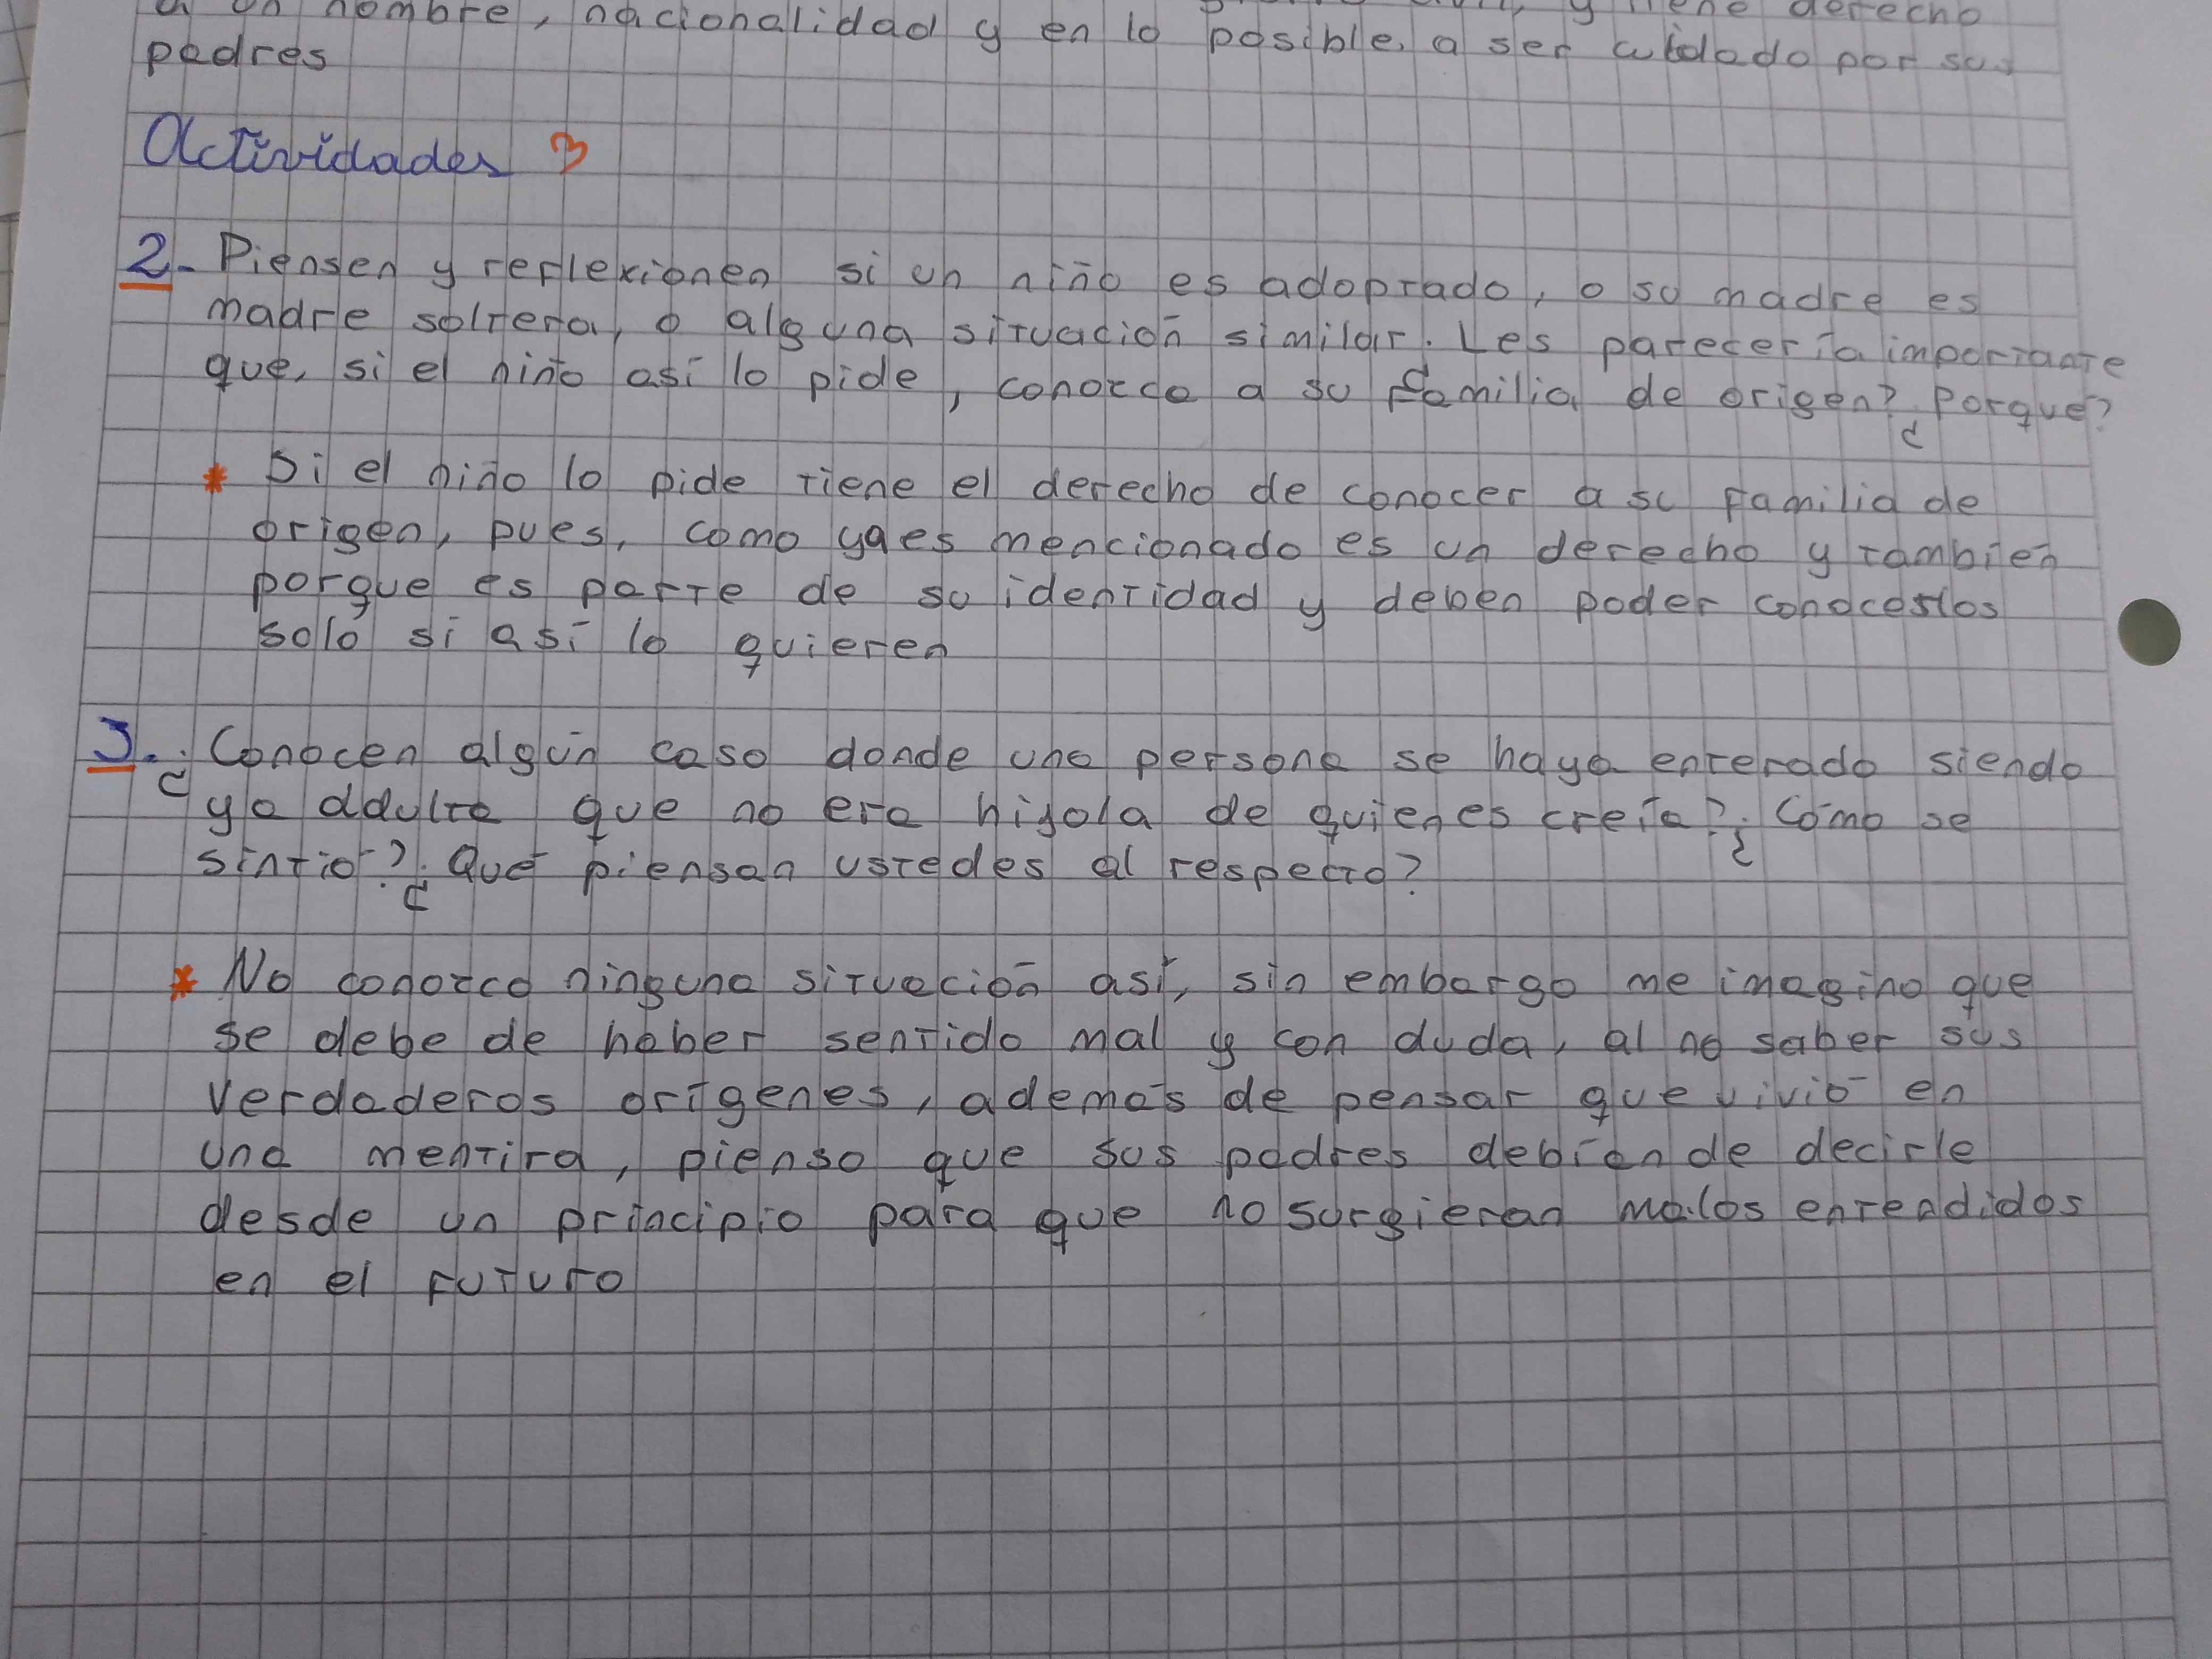 a un nombre, nacionalidad y en lo posible, a ser cuidado por sus
y tiene derecho
padres
Actividades
2.- Piensen y reflexionen si un niño es adoptado, o su madre es
madre soltera, o alguna situación similar. Les parecería importante
que, si el niño así lo pide, conozca a su familia de origen? ¿Porque?
* Si el niño lo pide tiene el derecho de conocer a su familia de
origen, pues, como ya es mencionado es un derecho y también
porque es parte de su identidad y deben poder conocerlos
solo si así lo quieren
3.- ¿Conocen algún caso donde una persona se haya enterado siendo
ya adulta que no era hijola de quienes creía? ¿Cómo se
sintió? ¿Qué piensan ustedes al respecto?
* No conozco ninguna situación así, sin embargo me imagino que
se debe de haber sentido mal y con duda, al no saber sus
verdaderos orígenes, además de pensar que vivió en
una mentira, pienso que sus padres debían de decirle
desde un principio para que no surgieran malos entendidos
en el futuro